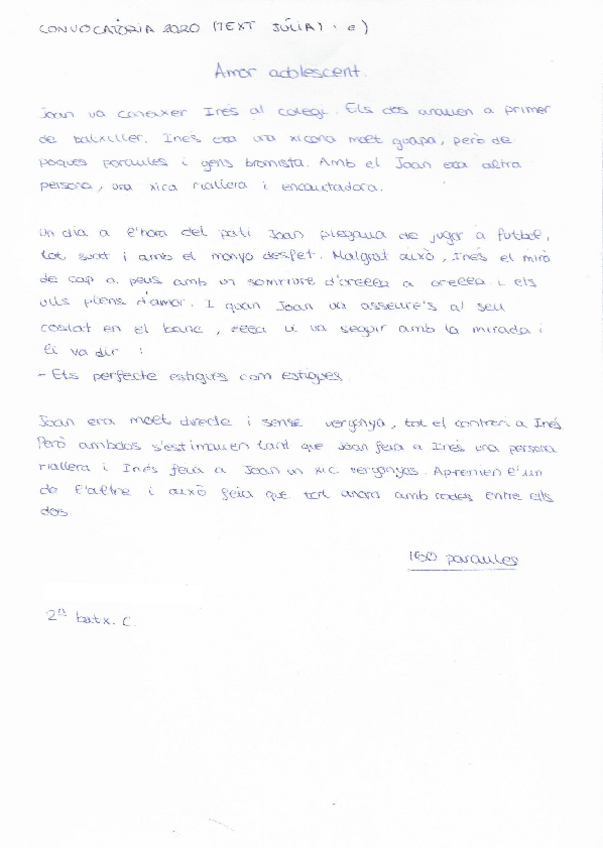 CONVOCATÒRIA 2020 (TEXT JÚLIA) · e)
Amor adolescent.
Joan va coneixer Inés al colegi. Els dos anaven a primer
de batxiller. Inés era una xicona molt guapa, però de
poques paraules i gens bromista. Amb el Joan era altra
persona, una xica riallera i encantadora.
Un dia a l'hora del pati Joan plegava de jugar a futbol,
tot suat i amb el monyo despet. Malgrat això, Inés el mirà
de cap a peus amb un somriure d'orella a orella i els
ulls plens d'amor. I quan Joan va asseure's al seu
costat en el banc, ella li va seguir amb la mirada i
li va dir :
- Ets perfecte estigues com estigues.
Joan era molt directe i sense vergonya, tot el contrari a Inés.
Però ambdos s'estimaven tant que Joan feia a Inés una persona
riallera i Inés feia a Joan un xic vergonyós. Aprenien l'un
de l'altre i això feia que tot anara amb rodes entre els
dos.
160 paraules
2n batx. C.